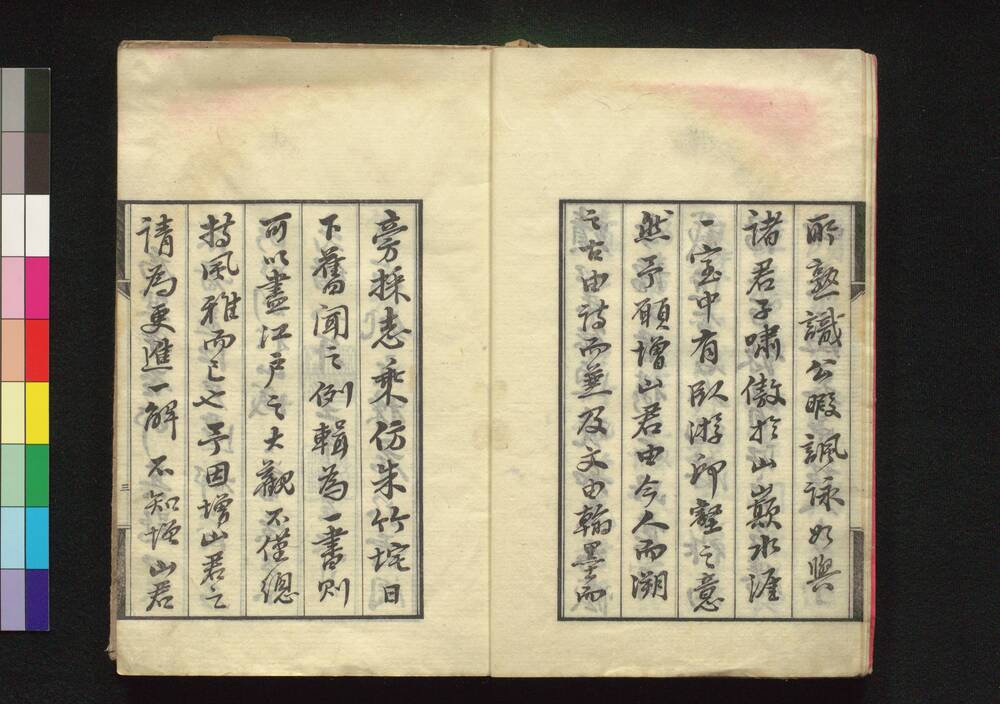 所熟識公暇諷詠如與
諸君子嘯傲於山巔水涯
一室中有臥游卽壑之意
然予願增山君由今人而溯
之古由詩而並及文由翰墨而
旁採志乘仿朱竹垞日
下舊聞之例輯為一書則
可以盡江戶之大觀不僅總
持風雅而已也予因增山君之
請為更進一解不知增山君
三